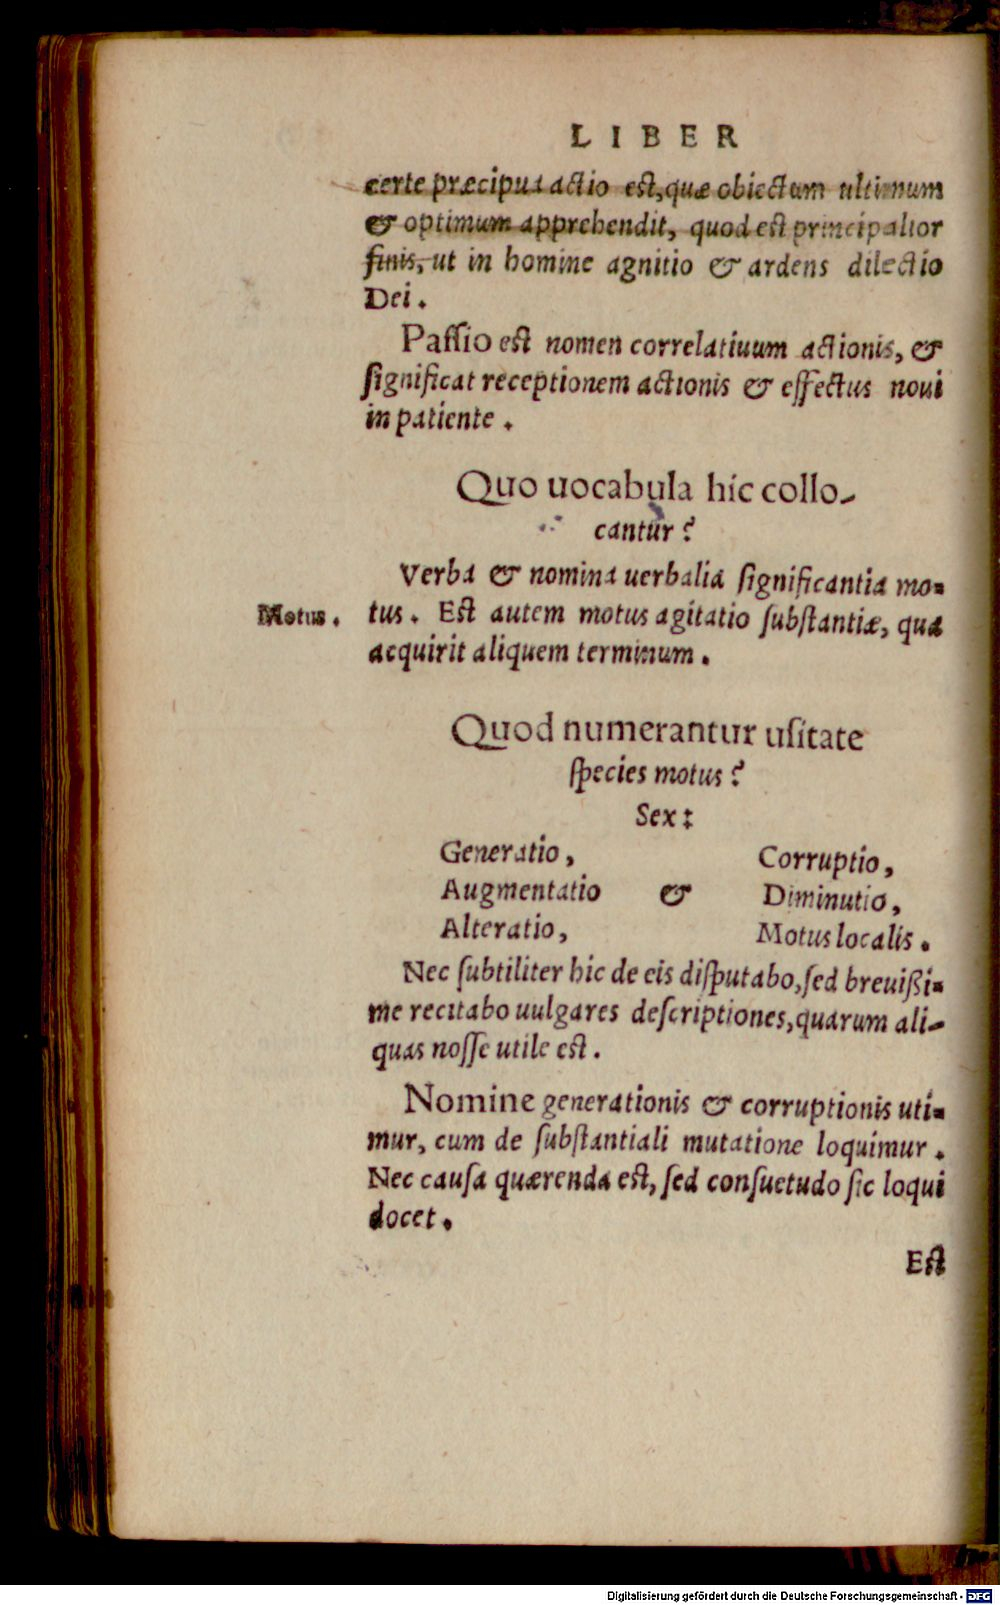 LIBER
certe præcipua actio est, quæ obiectum ultimum
& optimum apprehendit, quod est principalior
finis, ut in homine agnitio & ardens dilectio
Dei.
Paſſio est nomen correlatiuum actionis, &
ſignificat receptionem actionis & effectus noui
in patiente.
Quo uocabula hic collo-
cantur?
Verba & nomina uerbalia ſignificantia mo-
Motus. tus. Est autem motus agitatio ſubſtantiæ, qua
acquirit aliquem terminum.
Quod numerantur uſitate
ſpecies motus?
Sex:
Generatio, Corruptio,
Augmentatio & Diminutio,
Alteratio, Motus localis.
Nec ſubtiliter hic de eis diſputabo, ſed breuißi-
me recitabo uulgares deſcriptiones, quarum ali-
quas noſſe utile est.
Nomine generationis & corruptionis uti-
mur, cum de ſubſtantiali mutatione loquimur.
Nec cauſa quærenda est, ſed conſuetudo ſic loqui
docet.
Est
Digitalisierung gefördert durch die Deutsche Forschungsgemeinschaft - DFG